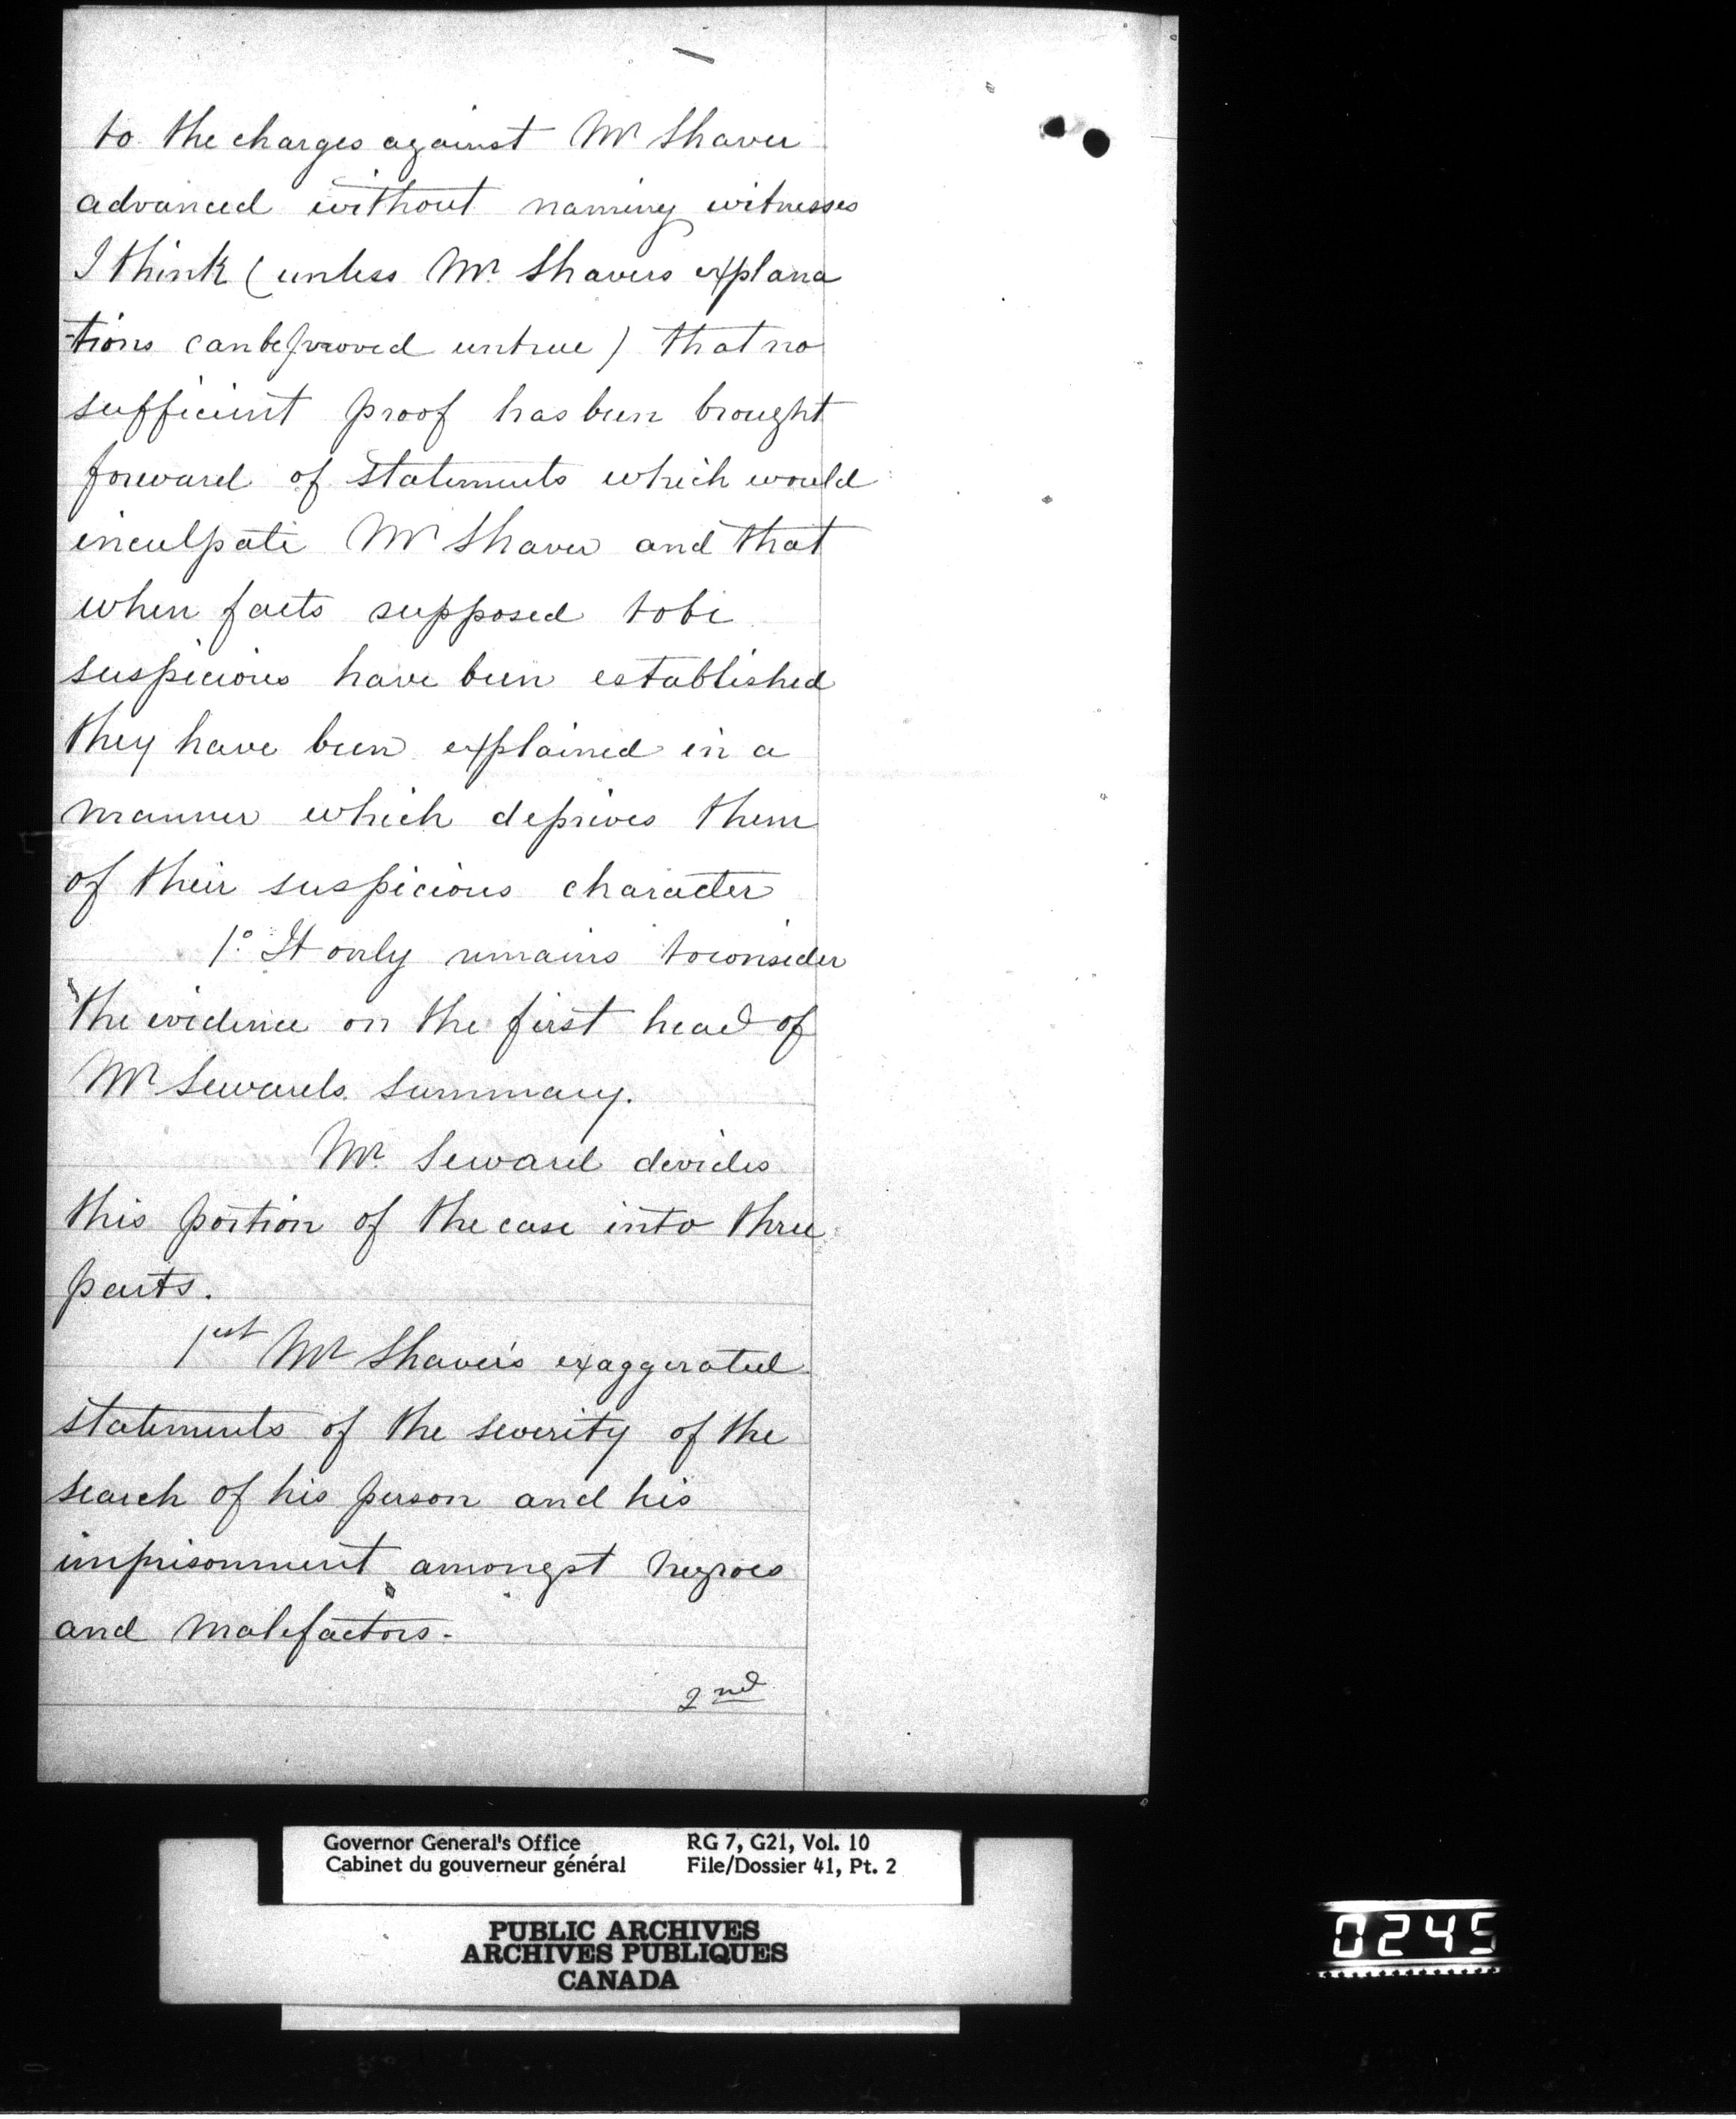 to the charges against Mr Shaver
advanced without naming witnesses
I think (unless Mr. Shavers explana
-tions can be proved untrue) that no
sufficient proof has been brought
forward of statements which would
inculpate Mr Shaver and that
when facts supposed to be
suspicious have been established
they have been explained in a
manner which deprives them
of their suspicious character
1º. It only remains to consider
the evidence on the first head of
Mr Sewards summary.
Mr. Seward devides
this portion of the case into three
parts.
1st Mr Shaver's exaggerated
statements of the severity of the
search of his person and his
imprisonment amongst negroes
and malefactors.
2nd
Governor General's Office RG 7, G21, Vol. 10
Cabinet du gouverneur général File/Dossier 41, Pt. 2
PUBLIC ARCHIVES
ARCHIVES PUBLIQUES
CANADA
0245